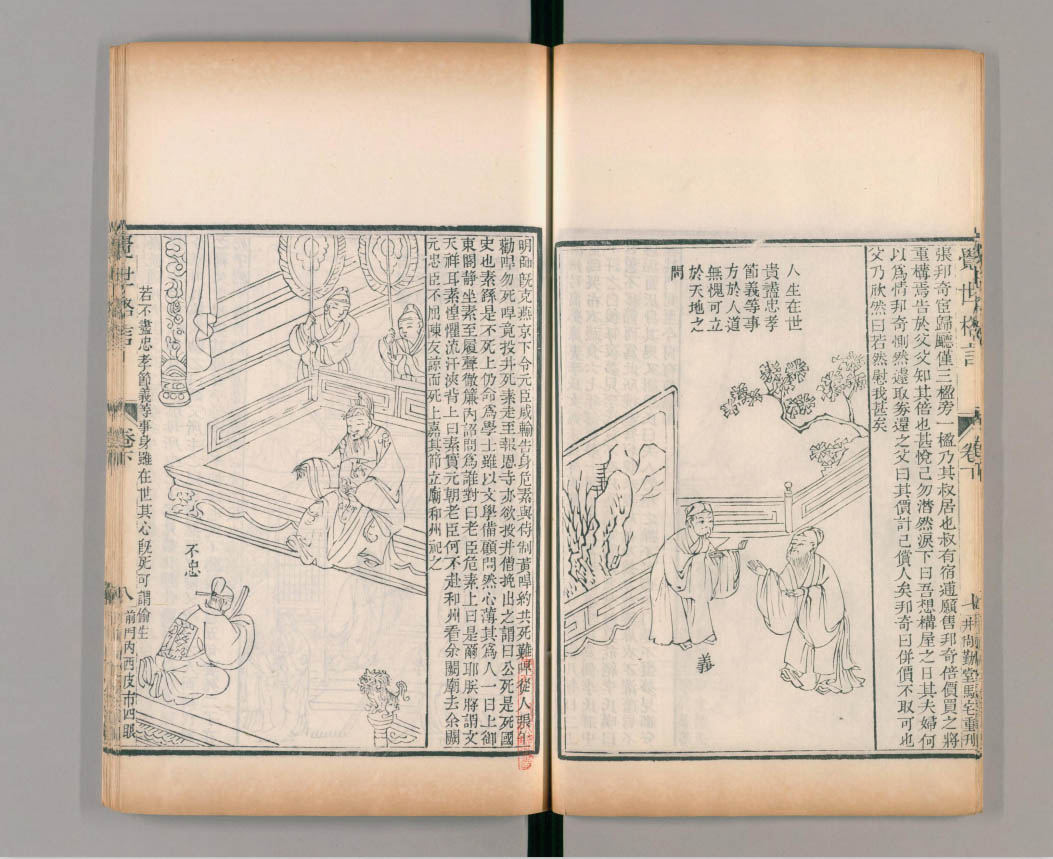 覺世格言
卷下
七
井尚勤堂駱宅重刊
張邦奇宦歸廳僅三楹旁一楹乃其叔居也叔有宿逋願售邦奇倍價買之將
重構焉告於父父知其倍也甚悅己勿潸然淚下曰吾想構屋之日其夫婦何
以爲情邦奇惻然遽取券還之父曰其價計已償人矣邦奇曰併價不取可也
父乃欣然曰若然慰我甚矣
人生在世
貴盡忠孝
節義等事
方於人道
無愧可立
於天地之
間
義
明師旣克燕京下令元臣咸輸告身危素與待制黃約共死難從人張
勸勿死竟投井死素走至報恩寺亦欲投井僧挽出之謂曰公死是死國
史也素繇是不死上仍命爲學士雖以文學備顧問然心薄其爲人一日上御
東閣靜坐素至履聲徹簾內詔問爲誰對曰老臣危素上曰是爾耶朕將謂文
天祥耳素惶懼流汗浹背上曰素實元朝老臣何不赴和州看余闕廟去余闕
元忠臣不屈陳友諒而死上嘉其節立廟和州祀之
不忠
若不盡忠孝節義等事身雖在世其心旣死可謂偷生
覺世格言
卷下
八
前門內西皮市四眼